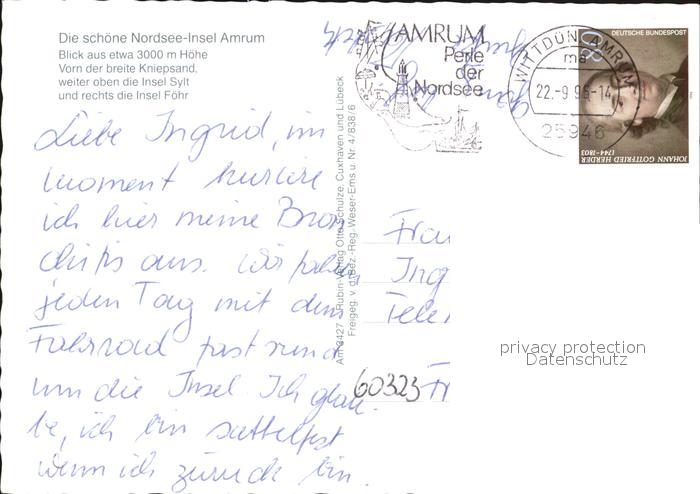 Die schöne Nordsee-Insel Amrum
Blick aus etwa 3000 m Höhe
Vorn der breite Kniepsand,
weiter oben die Insel Sylt
und rechts die Insel Föhr
Liebe Ingrid, im
Moment kuriere
ich hier meine Bron
chitis aus. Wir fahren
jeden Tag mit dem
Fahrrad fast rund
um die Insel. Ich glau
be, ich bin sattelfest
wenn ich zurück bin.
Am 3427 Rubin-Verlag Otto Schulze, Cuxhaven und Lübeck
Freigeg. v. d. Bez.-Reg. Weser-Ems u. Nr. 4/838/6
AMRUM
Perle
der
Nordsee
WITTDÜN, AMRUM
ma
22.-9.96-14
25946
DEUTSCHE BUNDESPOST
80
JOHANN GOTTFRIED HERDER
1744-1803
Frau
Ing
60323 Fr
privacy protection
Datenschutz